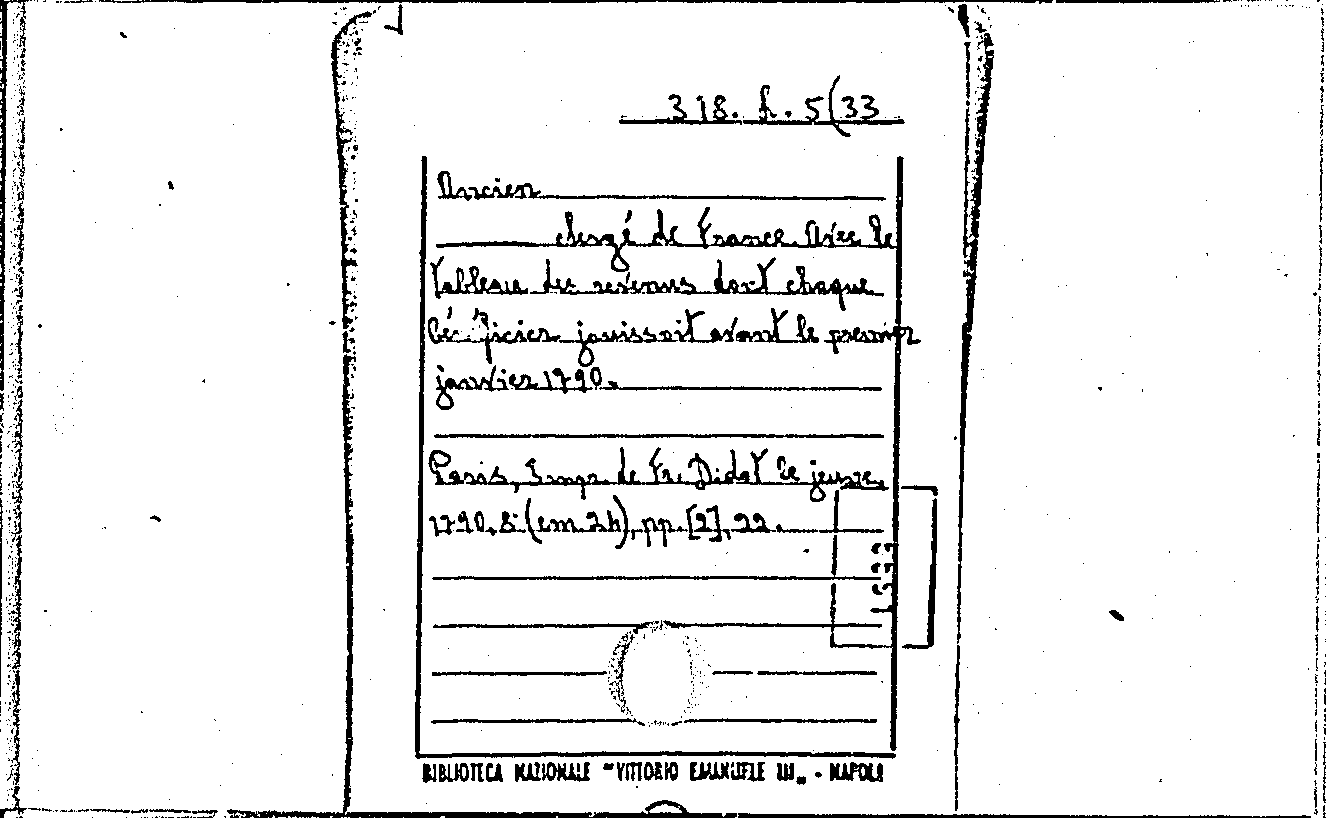 318. h. 5(33
Ancien
clergé de France. Avec le
tableau des revenus dont chaque
bénéficier jouissoit avant le premier
janvier 1790.
Paris, Impr. de Fr. Didot le jeune,
1790, 8° (cm. 24), pp. [2], 22.
BIBLIOTECA NAZIONALE "VITTORIO EMANUELE III„ - NAPOLI